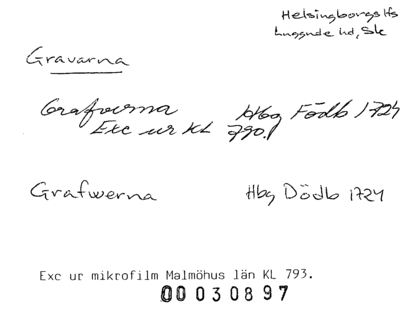 Helsingborgs lfs
Luggude hd, Sk
Gravarna
Grafverna Hbg Födb 1724
Exc ur KL 790.
Grafwerna Hbg Dödb 1724
Exc ur mikrofilm Malmöhus län KL 793.
00030897